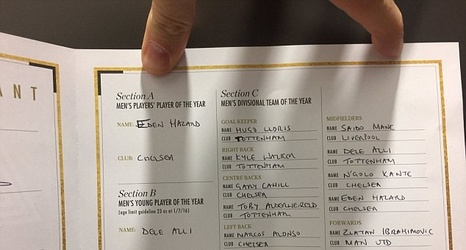 ANT
Section A
MEN'S PLAYERS' PLAYER OF THE YEAR
NAME: EDEN HAZARD
CLUB: CHELSEA
Section B
MEN'S YOUNG PLAYER OF THE YEAR
(age limit guideline 23 as at 1/7/16)
DELE ALLI
Section C
MEN'S DIVISIONAL TEAM OF THE YEAR
GOALKEEPER
NAME HUGO LLORIS
CLUB TOTTENHAM
RIGHT BACK
NAME KYLE WALKER
CLUB TOTTENHAM
CENTRE BACKS
NAME GARY CAHILL
CLUB CHELSEA
NAME TOBY ALDERWEIRELD
CLUB TOTTENHAM
LEFT BACK
NAME MARCOS ALONSO
CLUB CHELSEA
MIDFIELDERS
NAME SADIO MANE
CLUB LIVERPOOL
NAME DELE ALLI
CLUB TOTTENHAM
NAME N'GOLO KANTE
CLUB CHELSEA
NAME EDEN HAZARD
CLUB CHELSEA
FORWARDS
NAME ZLATAN IBRAHIMOVIC
CLUB MAN UTD